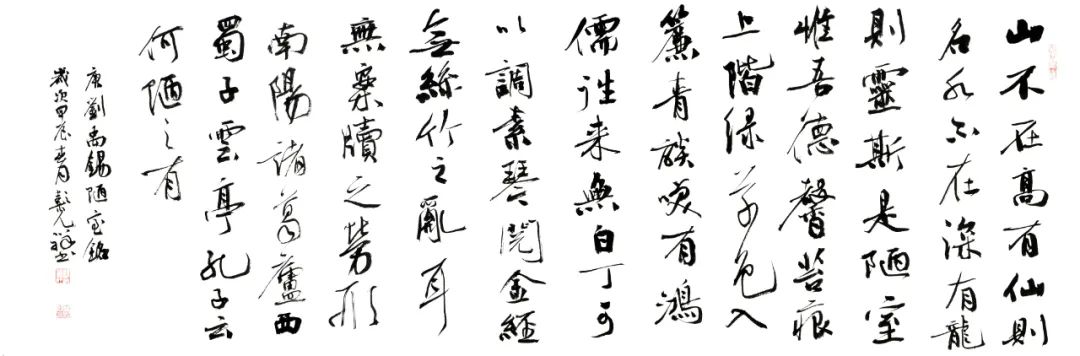 山不在高有仙則
名水不在深有龍
則靈斯是陋室
惟吾德馨苔痕
上階绿草色入
簾青談笑有鴻
儒往来無白丁可
以調素琴閲金經
無絲竹之亂耳
無案牘之勞形
南陽諸葛廬西
蜀子雲亭孔子云
何陋之有
唐劉禹錫陋室銘
歲次甲辰春月祥書